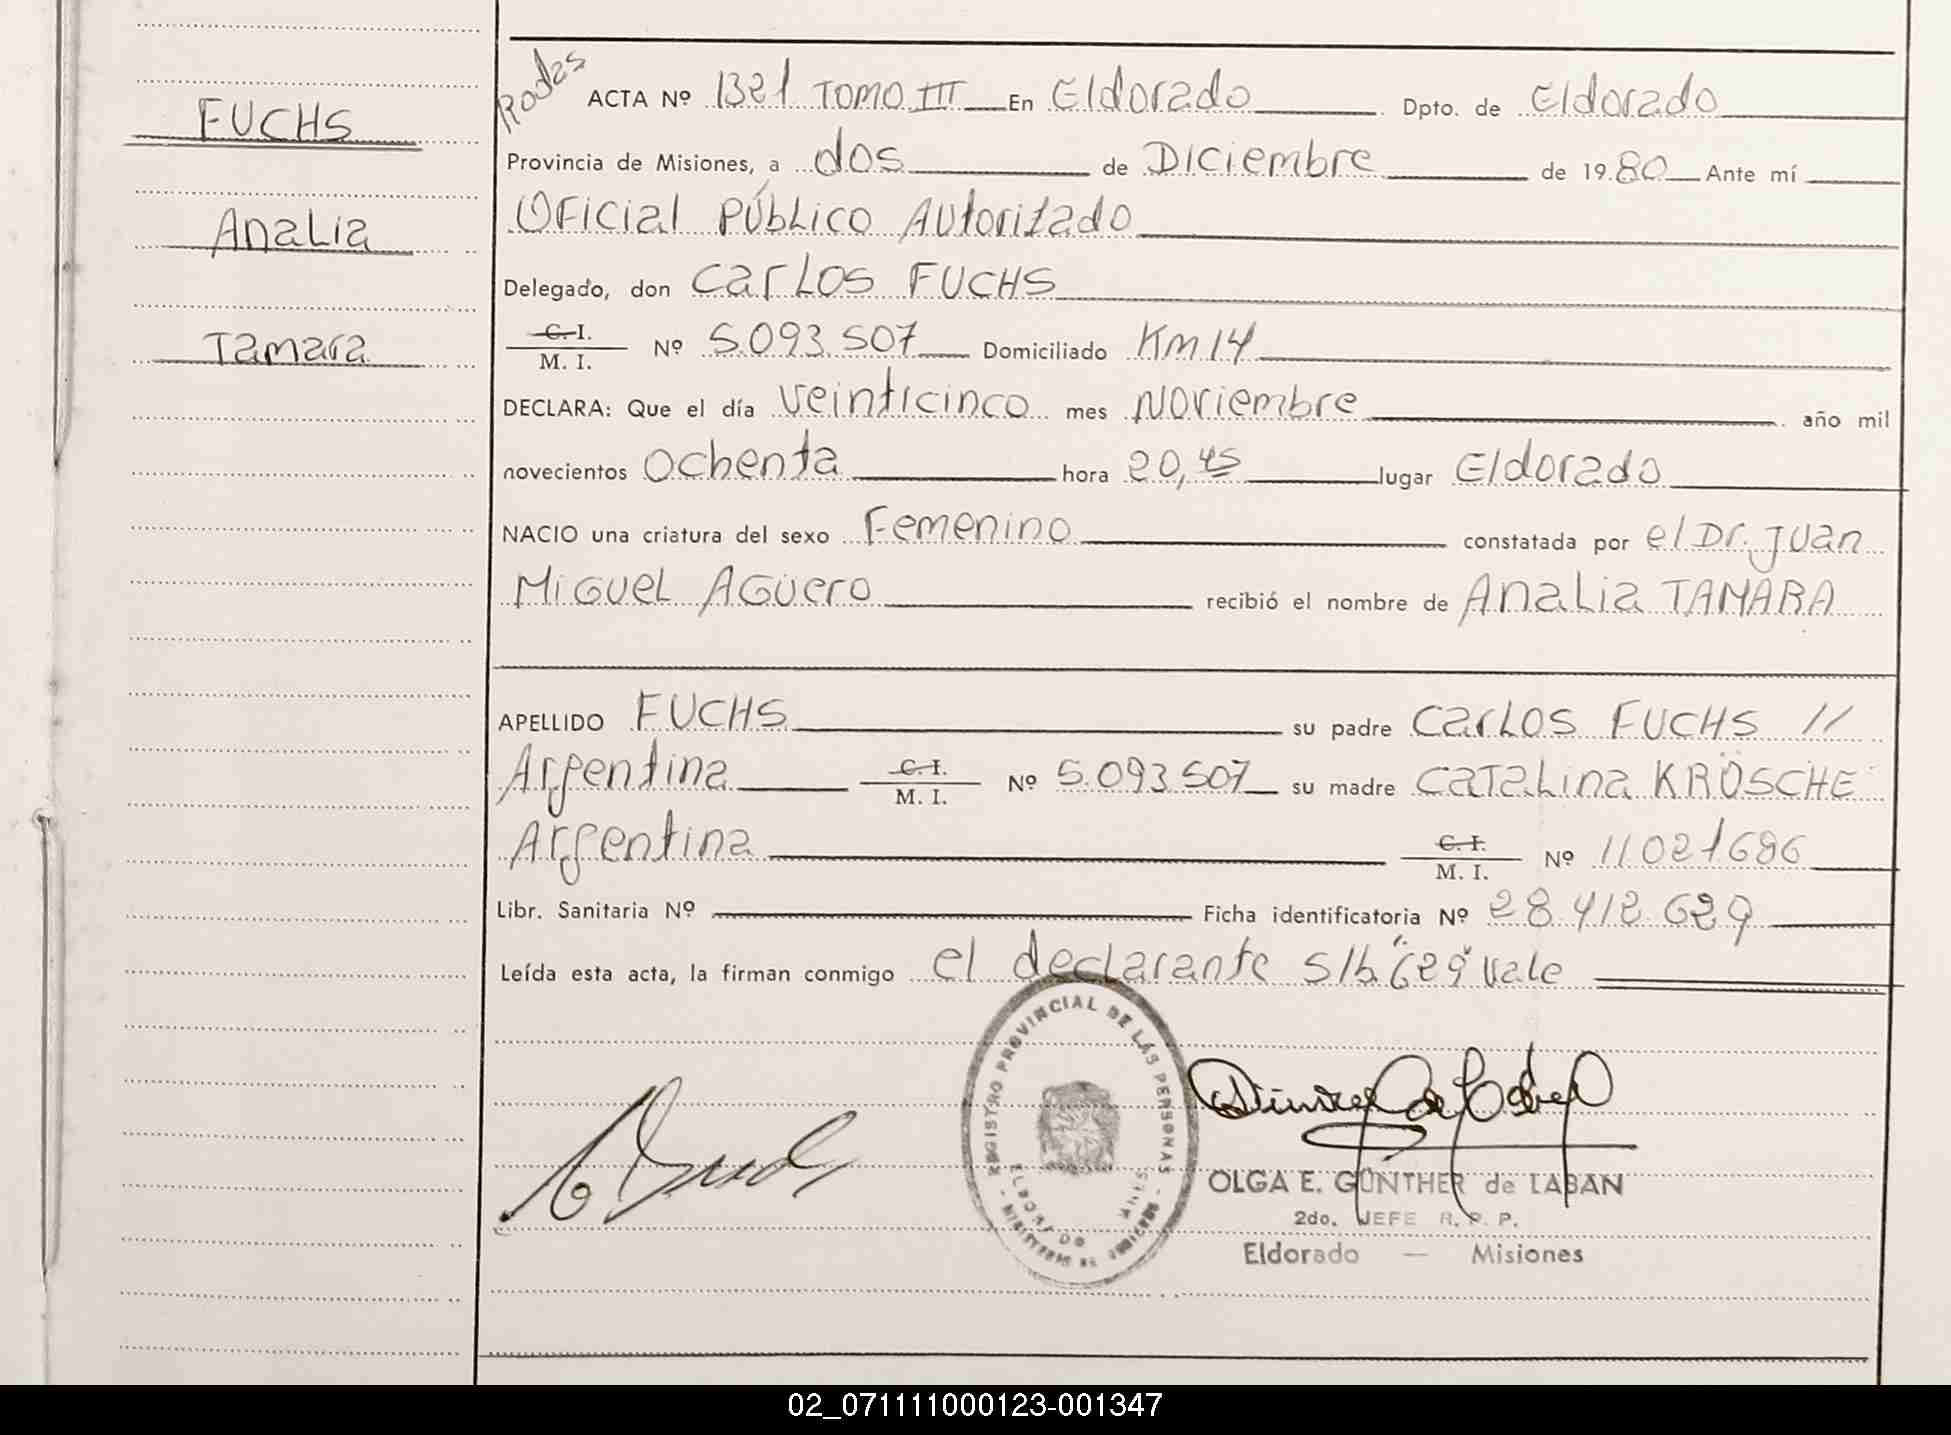 FUCHS
Analia
Tamara
Rodas
ACTA Nº 1321 TOMO III En Eldorado Dpto. de Eldorado
Provincia de Misiones, a dos de Diciembre de 1980 Ante mí
Oficial Público Autorizado
Delegado, don Carlos FUCHS
C. I.
M. I. Nº 5.093.507 Domiciliado Km 14
DECLARA: Que el día veinticinco mes Noviembre año mil
novecientos Ochenta hora 20,45 lugar Eldorado
NACIO una criatura del sexo Femenino constatada por el Dr. Juan
Miguel AGüero recibió el nombre de Analia TAMARA
APELLIDO FUCHS su padre Carlos FUCHS //
Argentina C. I. M. I. Nº 5.093.507 su madre Catalina KRÖSCHE
Argentina C. I. M. I. Nº 11.021686
Libr. Sanitaria Nº Ficha identificatoria Nº 28.412.629
Leída esta acta, la firman conmigo el declarante s/b "629" vale
REGISTRO PROVINCIAL DE LAS PERSONAS
ELDORADO
OLGA E. GÜNTHER de LABAN
2do. JEFE R. P. P.
Eldorado — Misiones
02_071111000123-001347